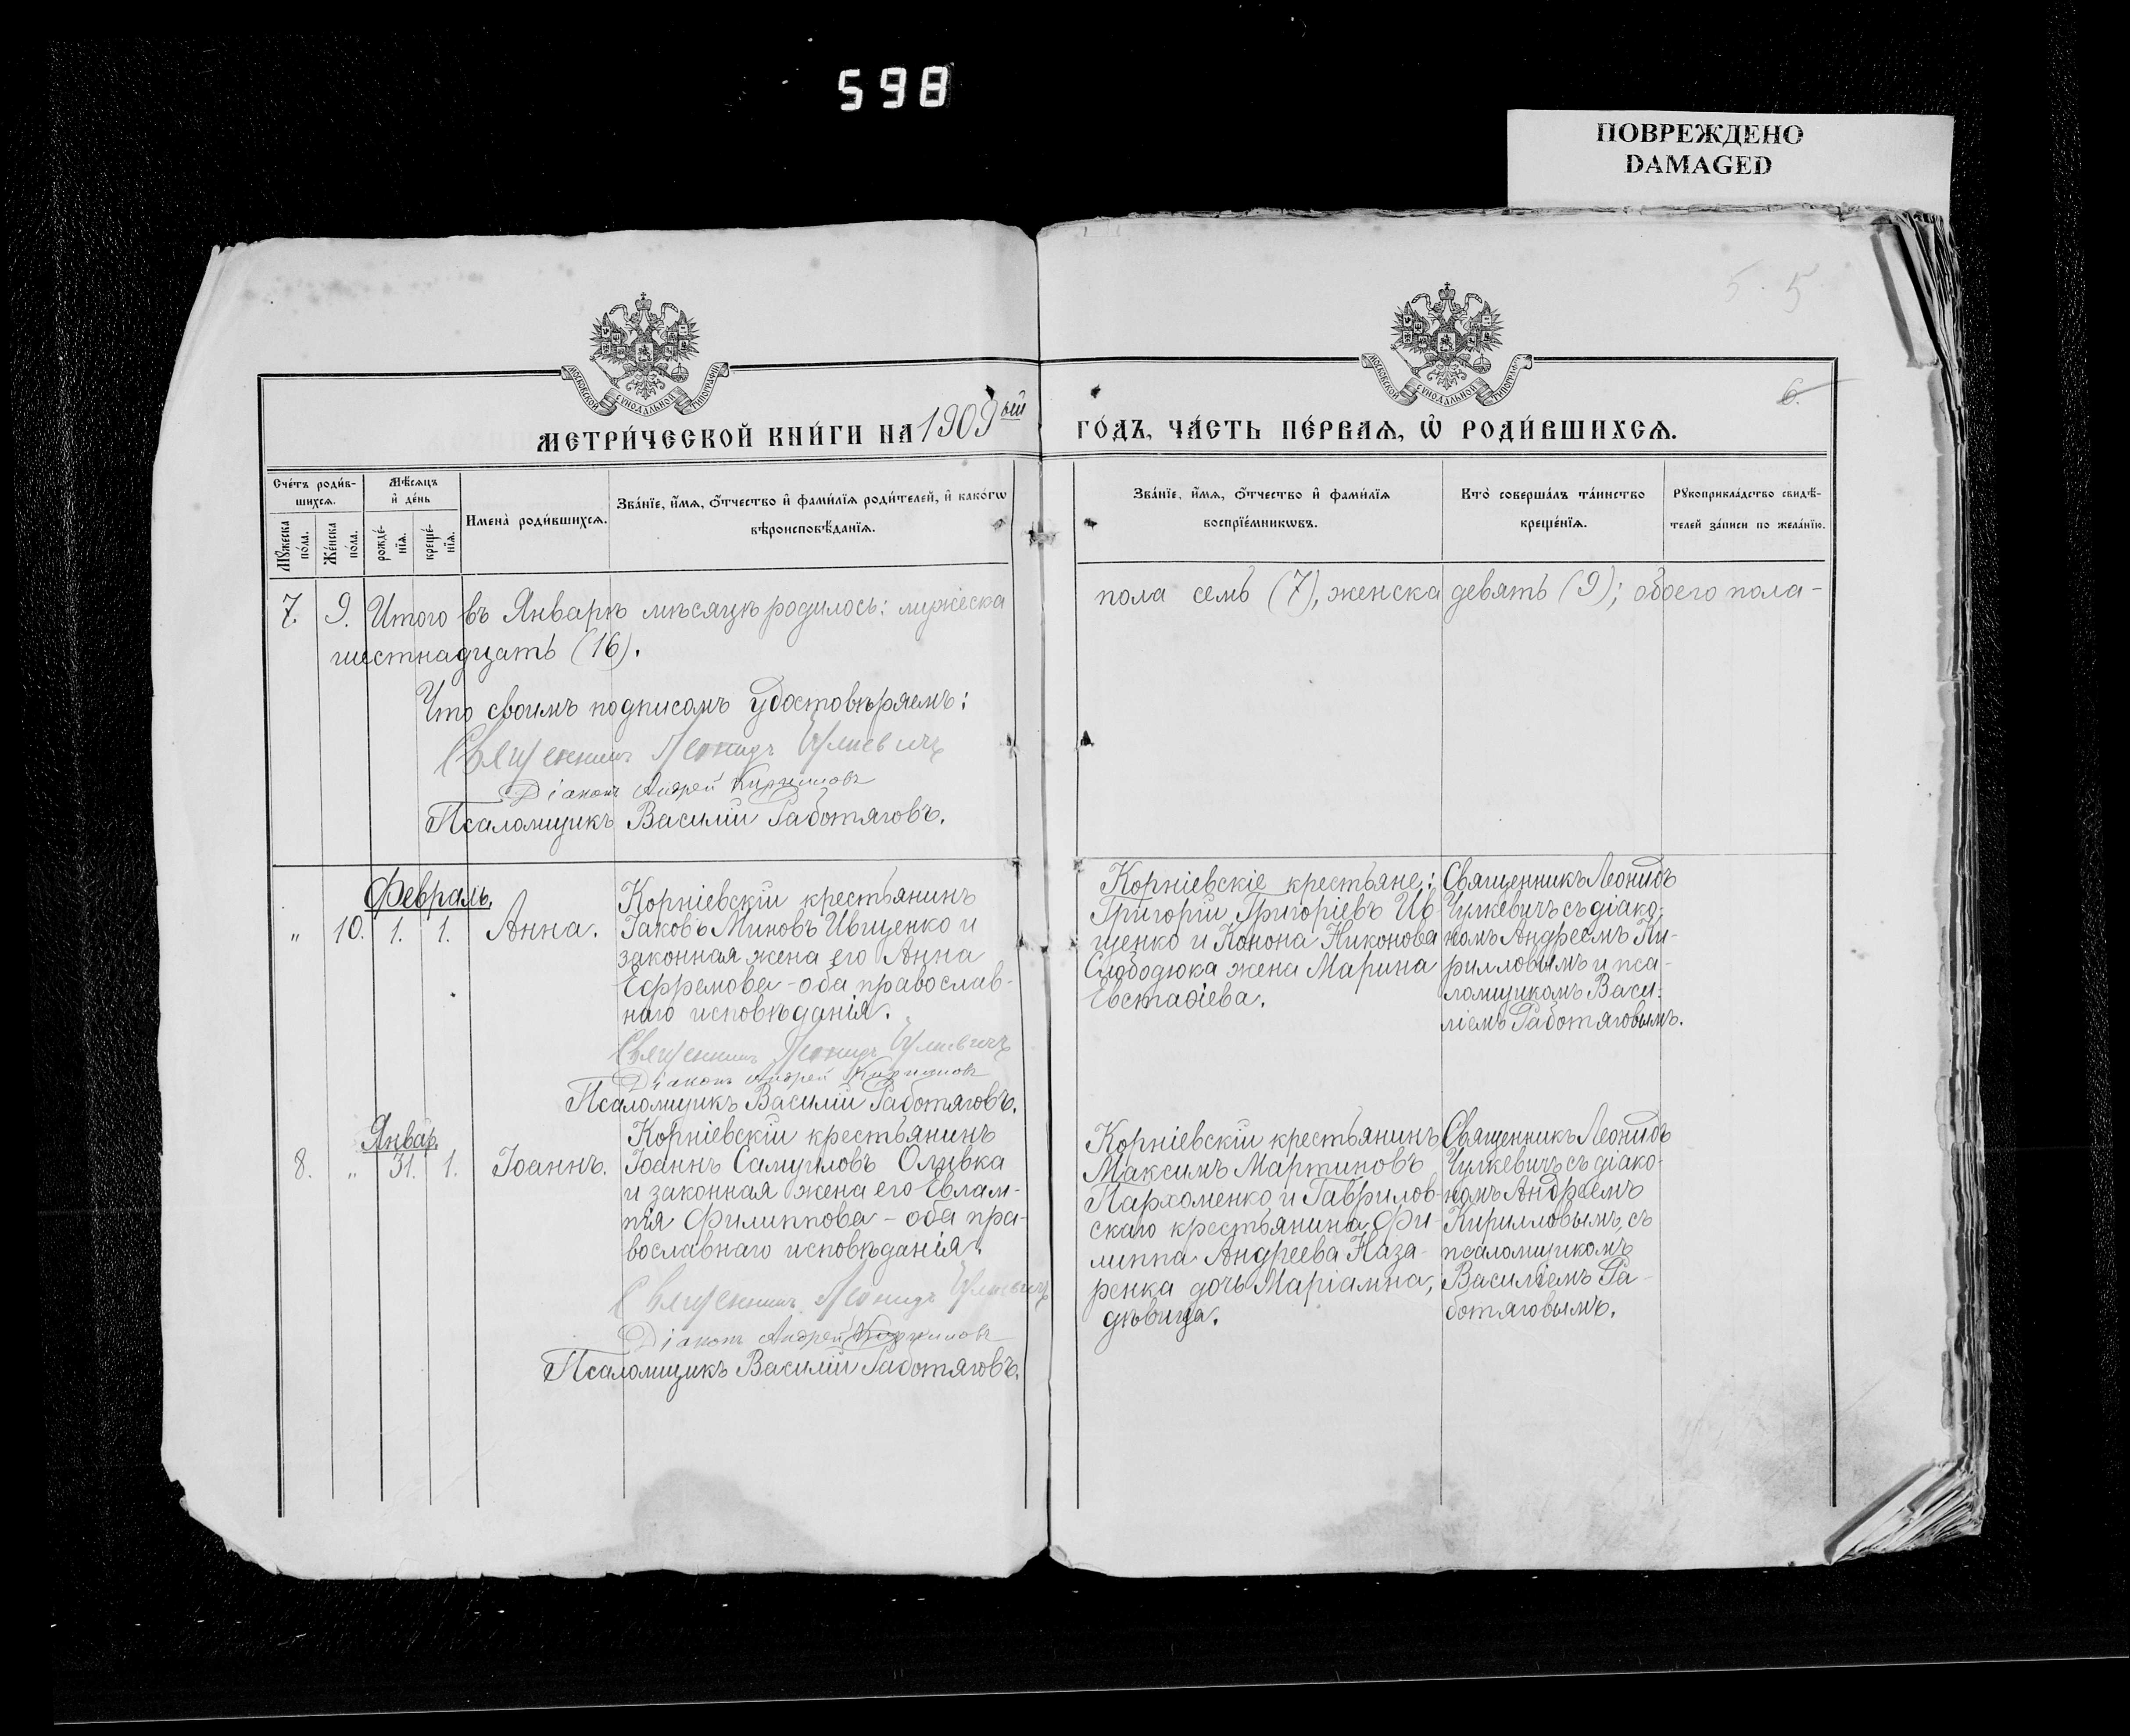 598
ПОВРЕЖДЕНО
DAMAGED
5. 5
6.
МОСКОВСКОЙ СѴНОДАЛЬНОЙ ТИПОГРАФІИ
МОСКОВСКОЙ СѴНОДАЛЬНОЙ ТИПОГРАФІИ
МЕТРИ́ЧЕСКОЙ КНИ́ГИ НА 1909ый
ГО́ДЪ, ЧА́СТЬ ПЕ́РВАѦ, Ѽ РОДИ́ВШИХСѦ.
Сче́тъ роди́в-
шихсѧ.
Мѣ́сѧцъ
и҆ де́нь
Мꙋ́жеска
по́ла.
Же́нска
по́ла.
рожде́-
нїѧ.
креще́-
нїѧ.
И҆мена̀ роди́вшихсѧ.
Зва́нїе, и҆́мѧ, ѻ҆́тчество и҆ фами́лїѧ роди́телей, и҆ како́гѡ
вѣроисповѣ́данїѧ.
Зва́нїе, и҆́мѧ, ѻ҆́тчество и҆ фами́лїѧ
воспрїе́мникѡвъ.
Кто̀ соверша́лъ та́инство
креще́нїѧ.
Рꙋкоприкла́дство свидѣ́-
телей за́писи по жела́нїю.
7. 9. Итого въ Январѣ мѣсяцѣ родилось: мужеска
пола семь (7), женска девять (9); обоего пола-
шестнадцать (16).
Что своимъ подписомъ удостовѣряемъ:
Священникъ Леонидъ Чулкевичъ
Діаконъ Андрей Кирилловъ
Псаломщикъ Василій Работяговъ.
Февраль.
" 10. 1. 1. Анна.
Корніевскій крестьянинъ
Іаковъ Миновъ Ивщенко и
законная жена его Анна
Ефремова - оба православ-
наго исповѣданія.
Священникъ Леонидъ Чулкевичъ
Діаконъ Андрей Кирилловъ
Псаломщикъ Василій Работяговъ.
Корніевскіе крестьяне:
Григорій Григоріевъ Ив-
щенко и Конона Никонова
Слободюка жена Марина
Евстаѳіева.
Священникъ Леонидъ
Чулкевичъ съ діако-
номъ Андреемъ Ки-
рилловымъ и пса-
ломщикомъ Васи-
ліемъ Работяговымъ.
Январ.
8. " 31. 1. Іоаннъ.
Корніевскій крестьянинъ
Іоаннъ Самуиловъ Оливка
и законная жена его Евлам-
пія Филиппова - оба пра-
вославнаго исповѣданія.
Священникъ Леонидъ Чулкевичъ
Діаконъ Андрей Кирилловъ
Псаломщикъ Василій Работяговъ.
Корніевскій крестьянинъ
Максимъ Мартиновъ
Пархоменко и Гаврилов-
скаго крестьянина Фи-
липпа Андреева Наза-
ренка дочь Маріамна,
дѣвица.
Священникъ Леонидъ
Чулкевичъ съ діако-
номъ Андреемъ
Кирилловымъ, съ
псаломщикомъ
Василіемъ Ра-
ботяговымъ.